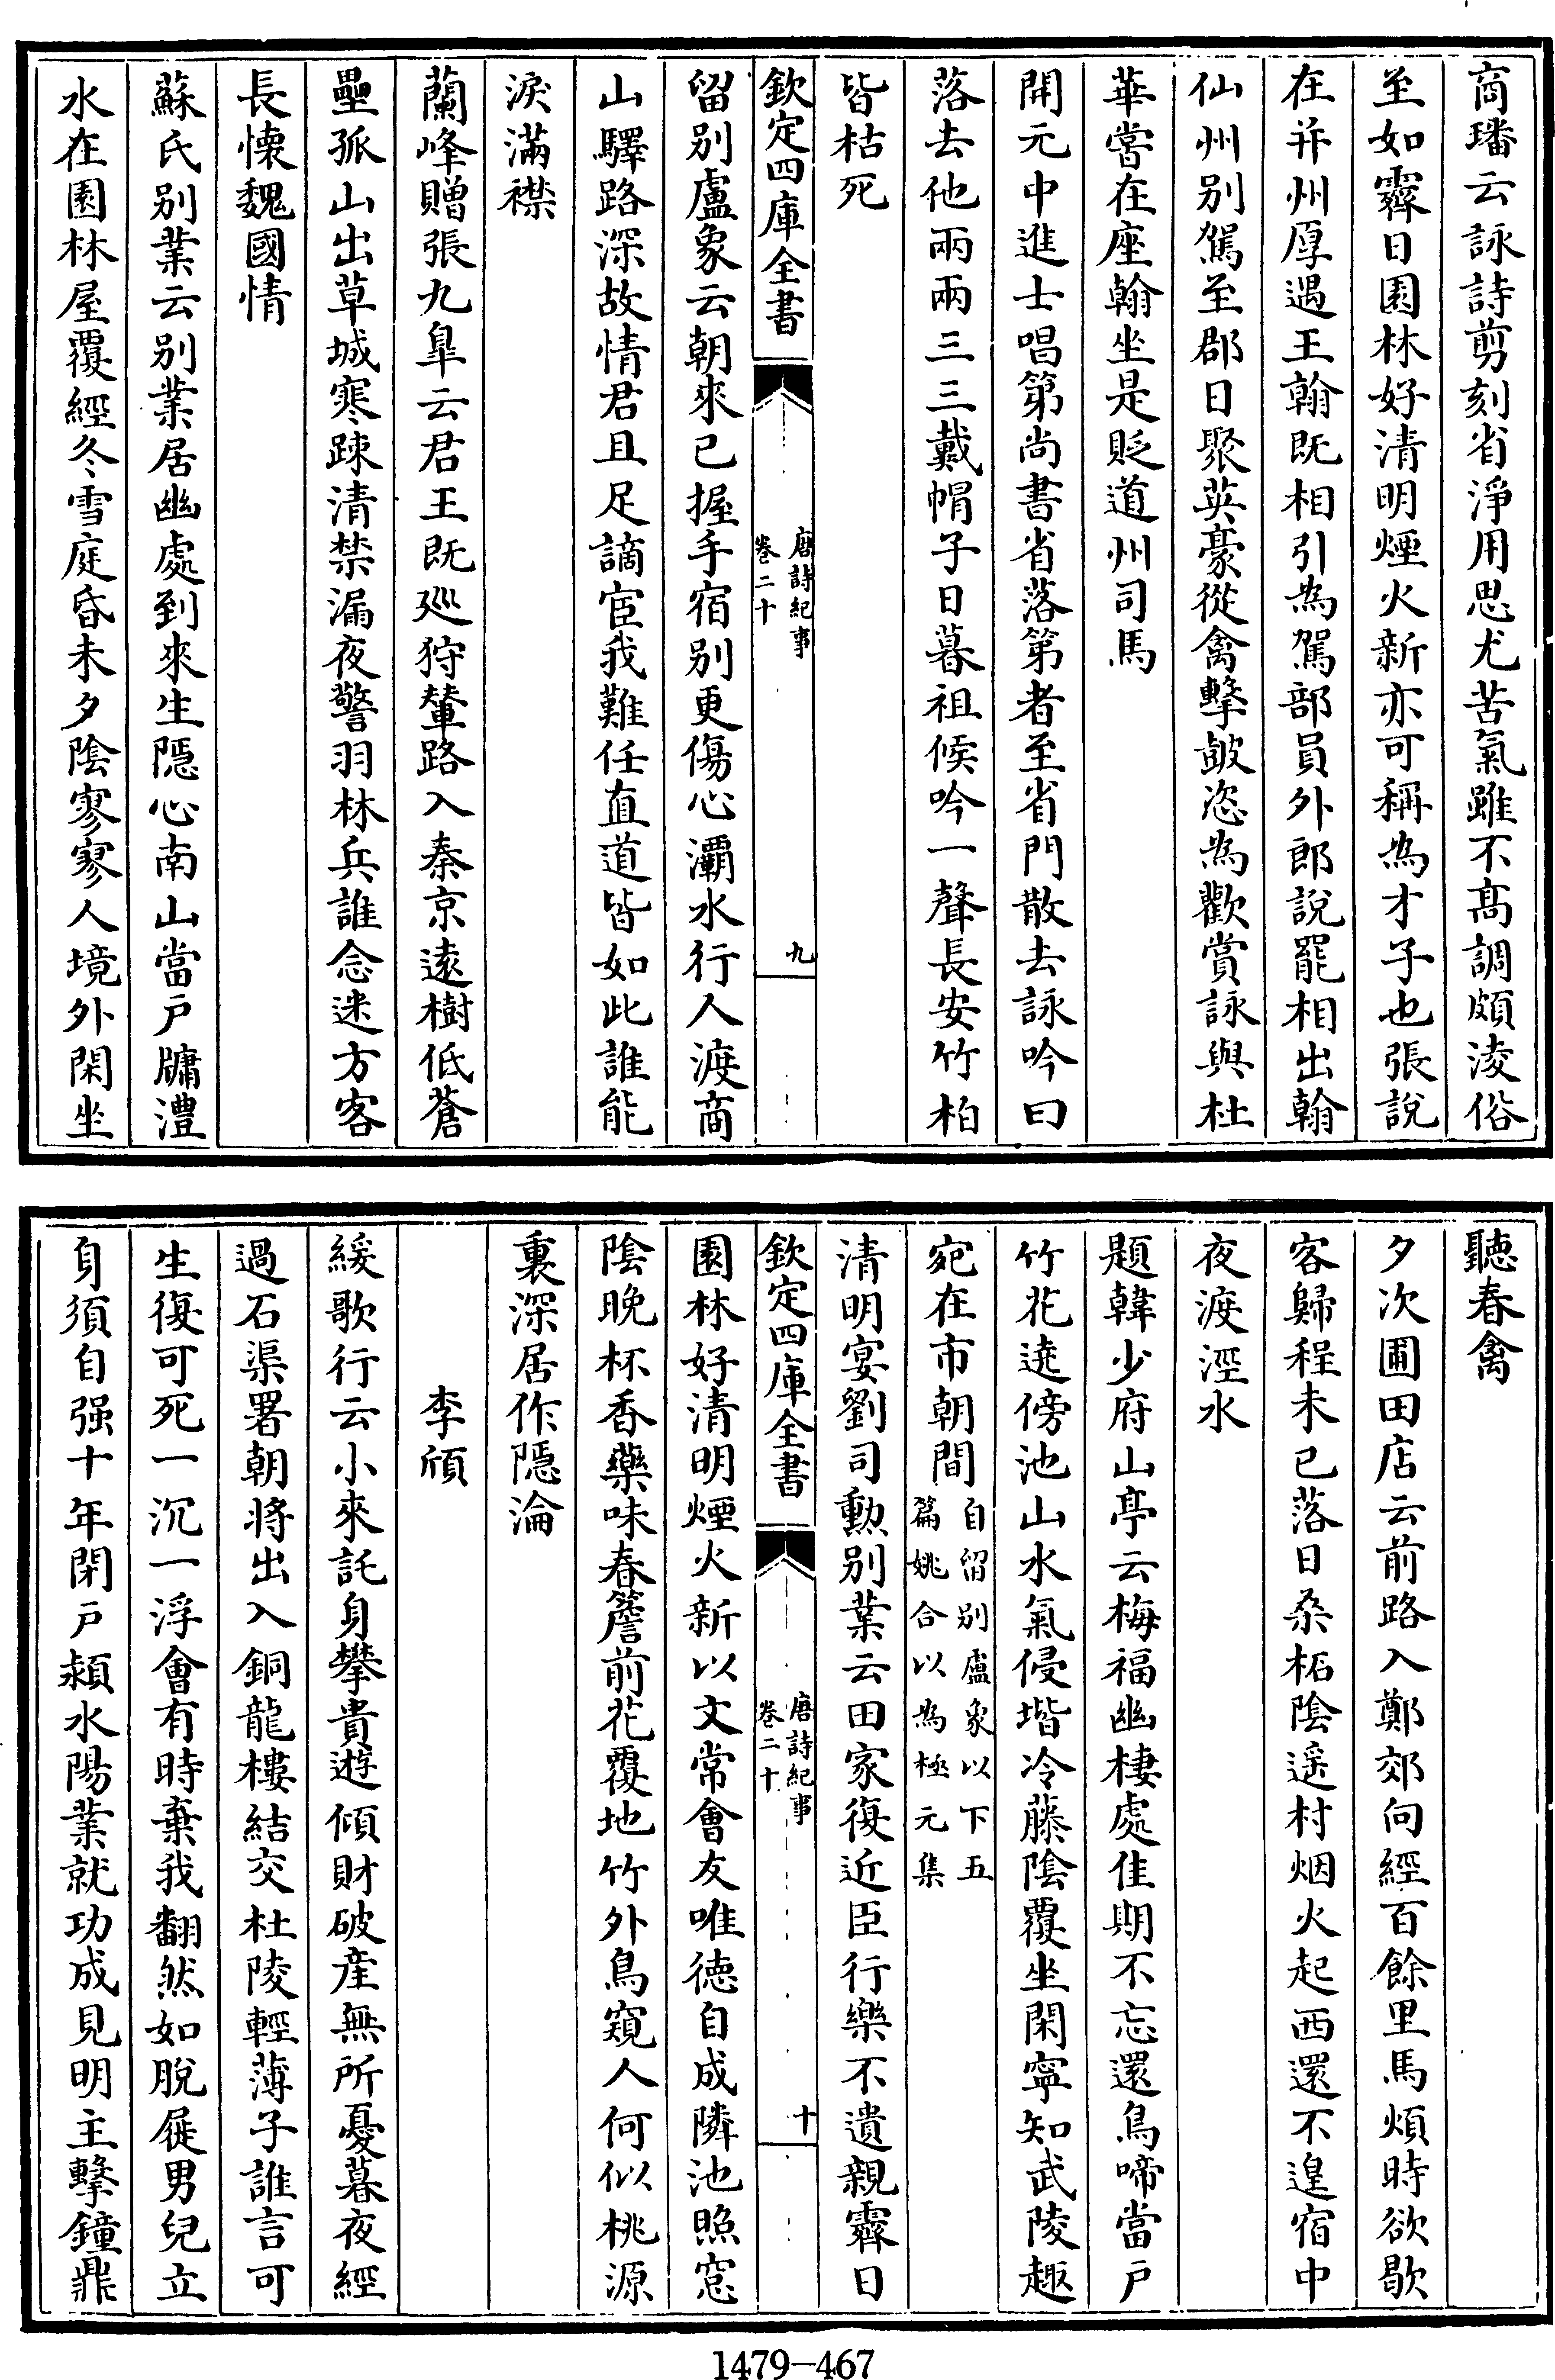 商璠云詠詩剪刻省淨用思尤苦氣雖不高調頗淩俗
至如霽日園林好清明煙火新亦可稱為才子也張說
在并州厚遇王翰既相引為駕部員外郎說罷相出翰
仙州别駕至郡日聚英豪從禽擊皷恣為歡賞詠與杜
華嘗在座翰坐是貶道州司馬
開元中進士唱第尚書省落第者至省門散去詠吟曰
落去他兩兩三三戴帽子日暮祖侯吟一聲長安竹柏
皆枯死
欽定四庫全書
唐詩紀事
卷二十
九
留别盧象云朝來已握手宿别更傷心灞水行人渡商
山驛路深故情君且足謫宦我難任直道皆如此誰能
淚滿襟
蘭峰贈張九臯云君王既巡狩輦路入秦京遠樹低蒼
壘孤山出草城寒踈清禁漏夜警羽林兵誰念迷方客
長懷魏國情
蘇氏别業云别業居幽處到來生隱心南山當戶牖澧
水在園林屋覆經冬雪庭昏未夕陰寥寥人境外閑坐
聽春禽
夕次圃田店云前路入鄭郊向經百餘里馬煩時欲歇
客歸程未已落日桑柘陰遥村烟火起西還不遑宿中
夜渡涇水
題韓少府山亭云梅福幽棲處佳期不忘還鳥啼當戶
竹花遶傍池山水氣侵堦冷藤陰覆坐閑寧知武陵趣
宛在市朝間自留别盧象以下五
篇姚合以為極元集
清明宴劉司勳别業云田家復近臣行樂不遺親霽日
欽定四庫全書
唐詩紀事
卷二十
十
園林好清明煙火新以文常會友唯德自成隣池照窓
陰晚杯香藥味春簷前花覆地竹外鳥窺人何似桃源
裏深居作隱淪
李頎
緩歌行云小來託身攀貴遊傾財破産無所憂暮夜經
過石渠署朝將出入銅龍樓結交杜陵輕薄子誰言可
生復可死一沉一浮會有時棄我翻然如脫屣男兒立
身須自强十年閉戶潁水陽業就功成見明主擊鐘鼎
1479—467